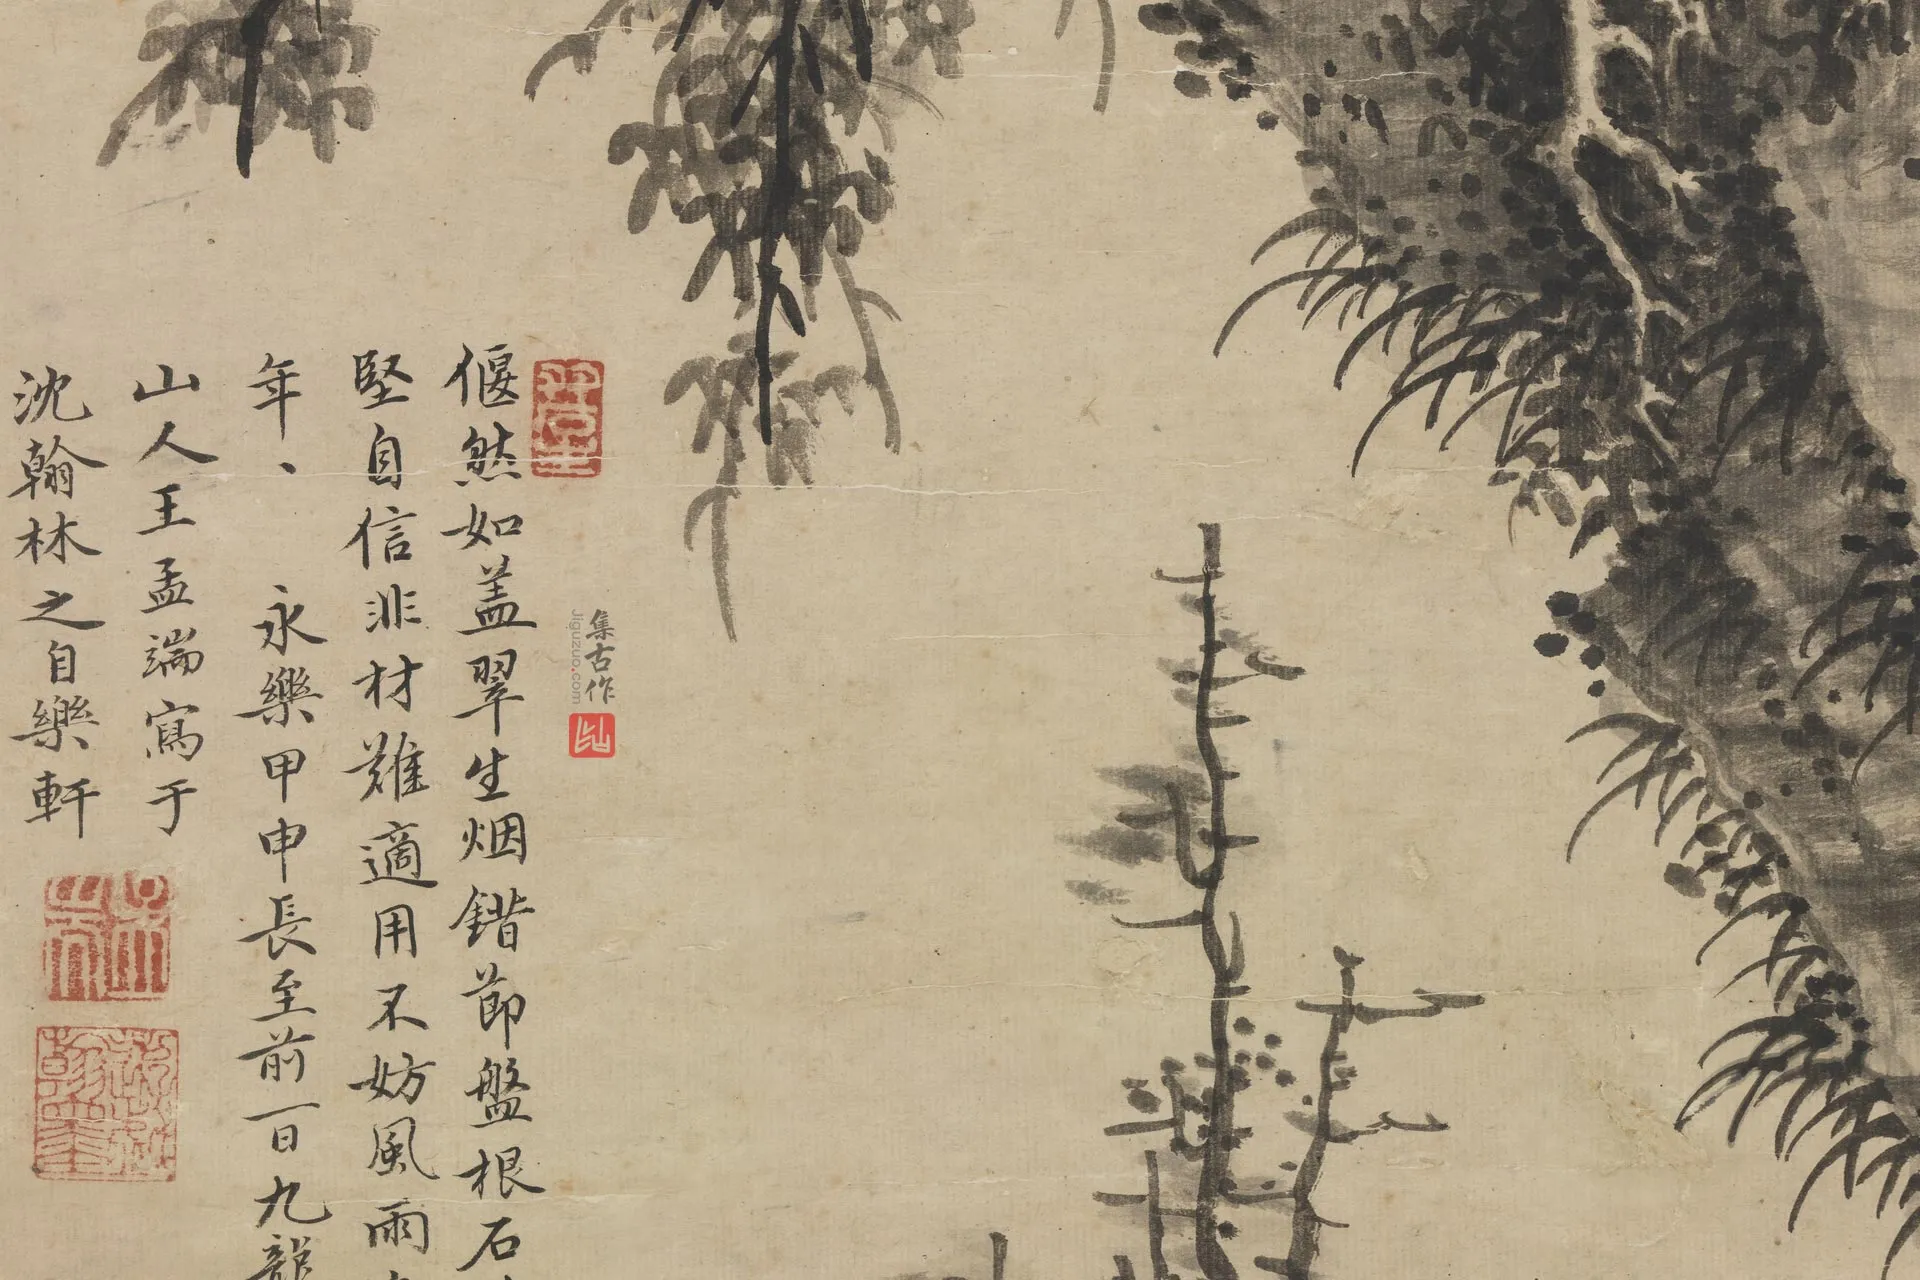 偃然如盖翠生烟鐕節盤根石
堅自信非材難適用不妨風雨
年、永樂甲申長至前一日九龍
山人王孟端寫于
沈翰林之自樂軒
集古作
jiguzuo.com